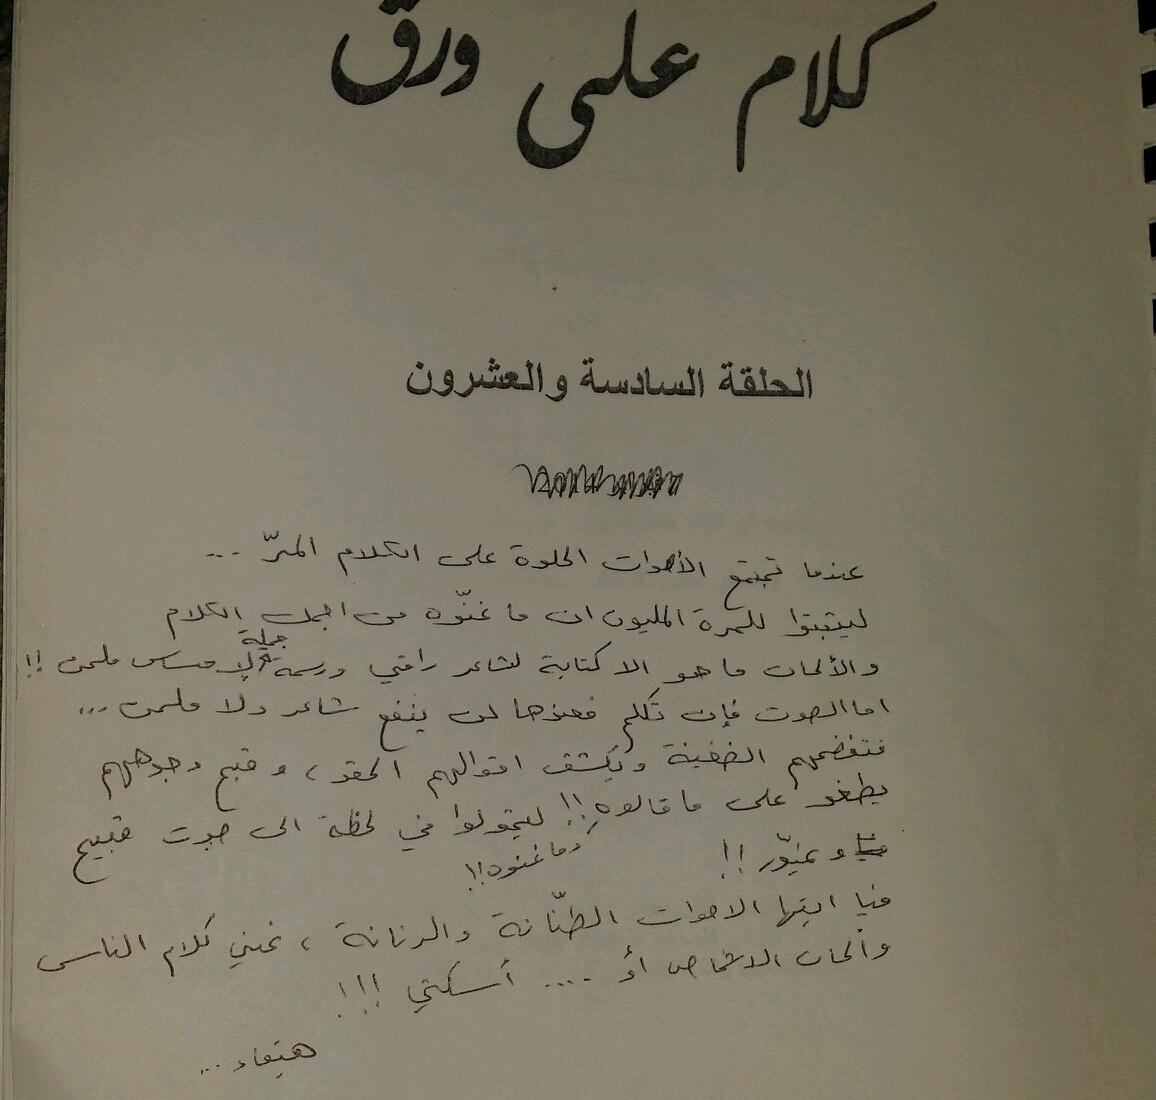 كلام على ورق
الحلقة السادسة والعشرون
عندما تجتمع الأصوات الحلوة على الكلام المرّ ...
ليثبتوا للمرة المليون ان ما غنّوه من اجمل الكلام
والألحان ما هو الا كتابة لشاعر راقي ورسمة جميلة لإحساس ملحن !!
اما الصوت فإن تكلم فعندها لن ينفع شاعر ولا ملحن ...
فتفضحهم الضغينة ويكشف اقوالهم الحقد ، و قبح وجوههم
يطغو على ما قالوه !! ليتحولوا في لحظة الى صوت قبيح
وما غنوه !!
و !!
فيا ايتها الاصوات الطنّانة والرنانة ، غني كلام الناس
وألحان الاشخاص أو .... أسكتي !!!
هيفاء ...